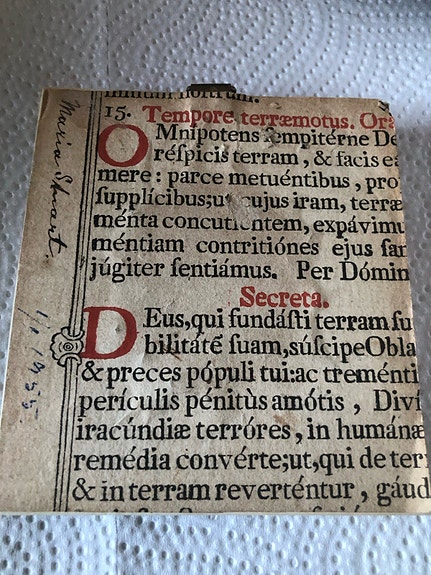 noſtrum.
15. Tempore terræmotus. Ora
OMnipotens ſempitérne De
réſpicis terram, & facis e
mere: parce metuéntibus, pro
ſupplícibus; ut cujus iram, terræ
ménta concutientem, expávimu
méntiam contritiónes ejus ſan
júgiter ſentiámus. Per Dómin
Secreta.
DEus, qui fundáſti terram ſu
bilitáté ſuam, súſcipe Obla
& preces pópuli tui: ac treménti
perículis pénitùs amótis, Diví
iracúndiæ terróres, in humánæ
remédia convérte; ut, qui de terr
& in terram reverténtur, gáud
Maria Stuart.